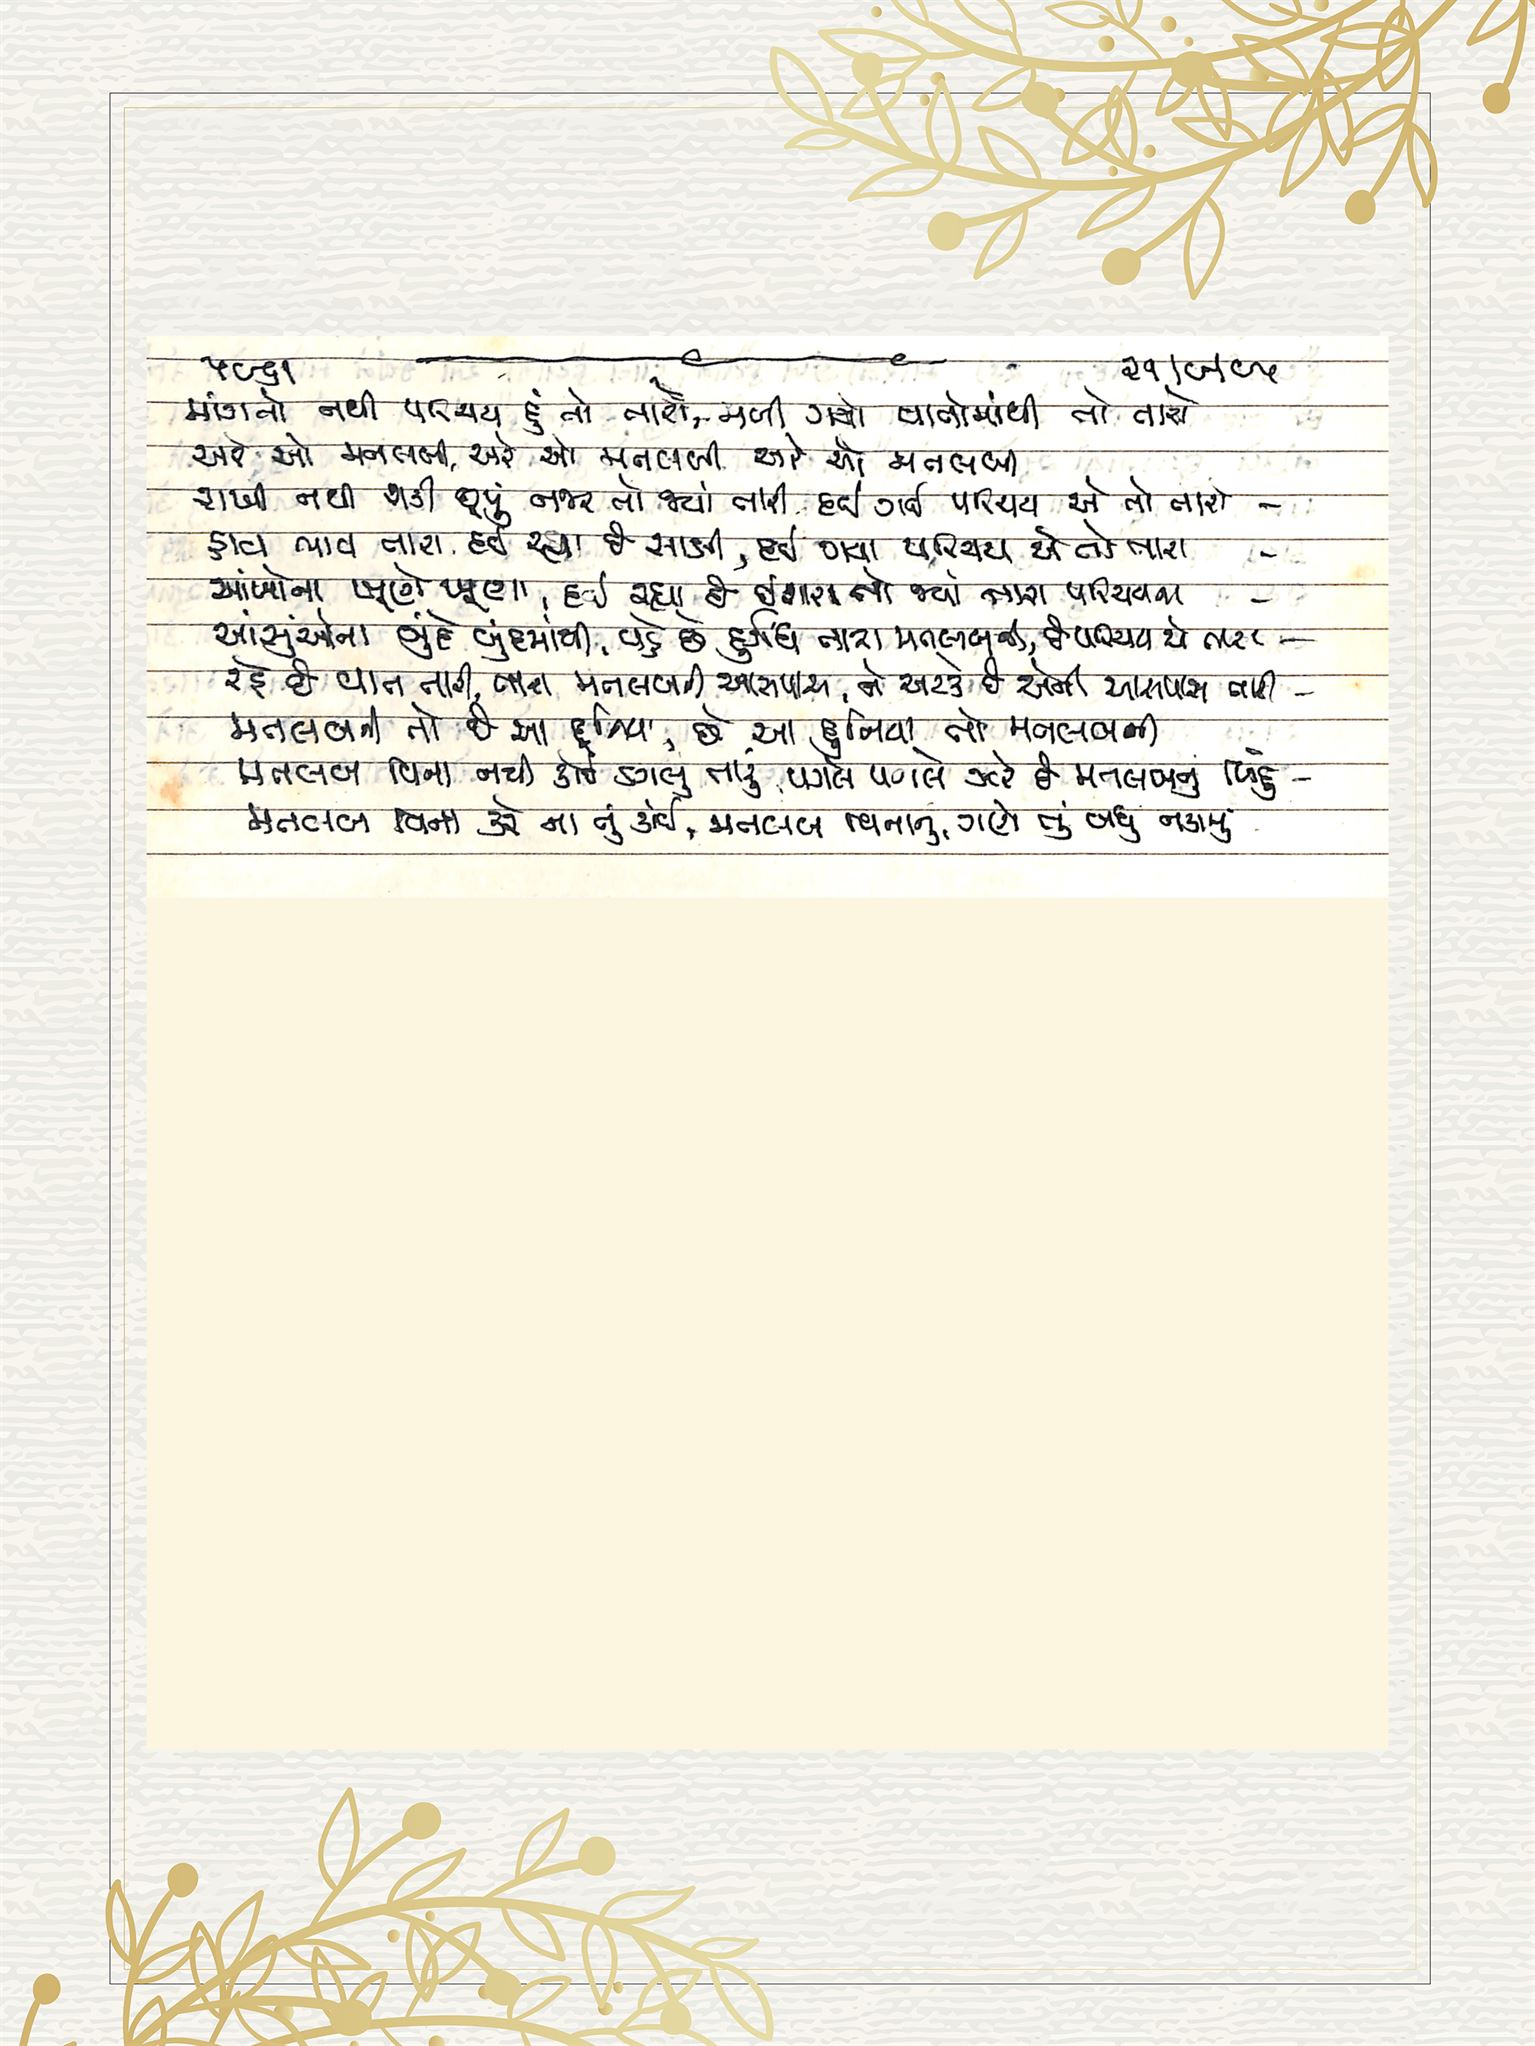 ૫૯૬૧ ૨૧/૯/૯૫
માંગતો નથી પરિચય હું તો તારો, મળી ગયો વાતોમાંથી તો તારો
અરે ઓ મતલબી, અરે ઓ મતલબી અરે ઓ મતલબી
રાખી નથી શકી છૂપું નજર તો જ્યાં તારી દઈ ગઈ પરિચય એ તો તારો –
હાવ ભાવ તારા દઈ રહ્યા છે સાક્ષી, દઈ ગયા પરિચય એ તો તારા –
આંખોના ખૂણે ખૂણા, દઈ રહ્યા છે ઈશારા તો જ્યાં તારા પરિચયના –
આંસુંઓના બુંદે બુંદમાંથી, વહે છે દુર્ગંધ તારા મતલબની, છે પરિચય એ તારા –
રહે છે વાત તારી, તારા મતલબની આસપાસ, ને અટકે છે એની આસપાસ તારી –
મતલબની તો છે આ દુનિયા, છે આ દુનિયા તો મતલબની
મતલબ વિના નથી કોઈ ડગલું તારું, પગલે પગલે ઝરે છે મતલબનું બિંદું –
મતલબ વિના કરે ના તું કાંઈ, મતલબ વિનાનું, ગણે તું બધું નકામું